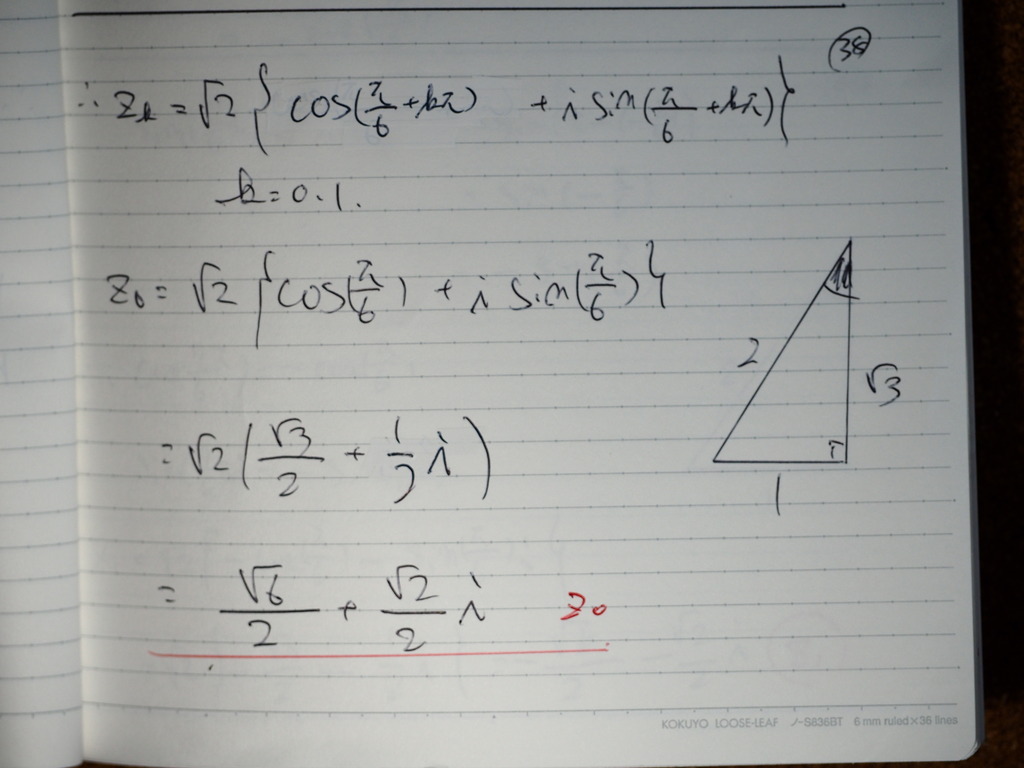 ㊳
∴ z_k = √2 { cos(π/6 + kπ) + i sin(π/6 + kπ) }
k = 0.1.
z_0 = √2 { cos(π/6) + i sin(π/6) }
2
√3
= √2 ( √3/2 + 1/2 i )
1
= √6/2 + √2/2 i z_0
KOKUYO LOOSE-LEAF ノ-S836BT 6 mm ruled×36 lines